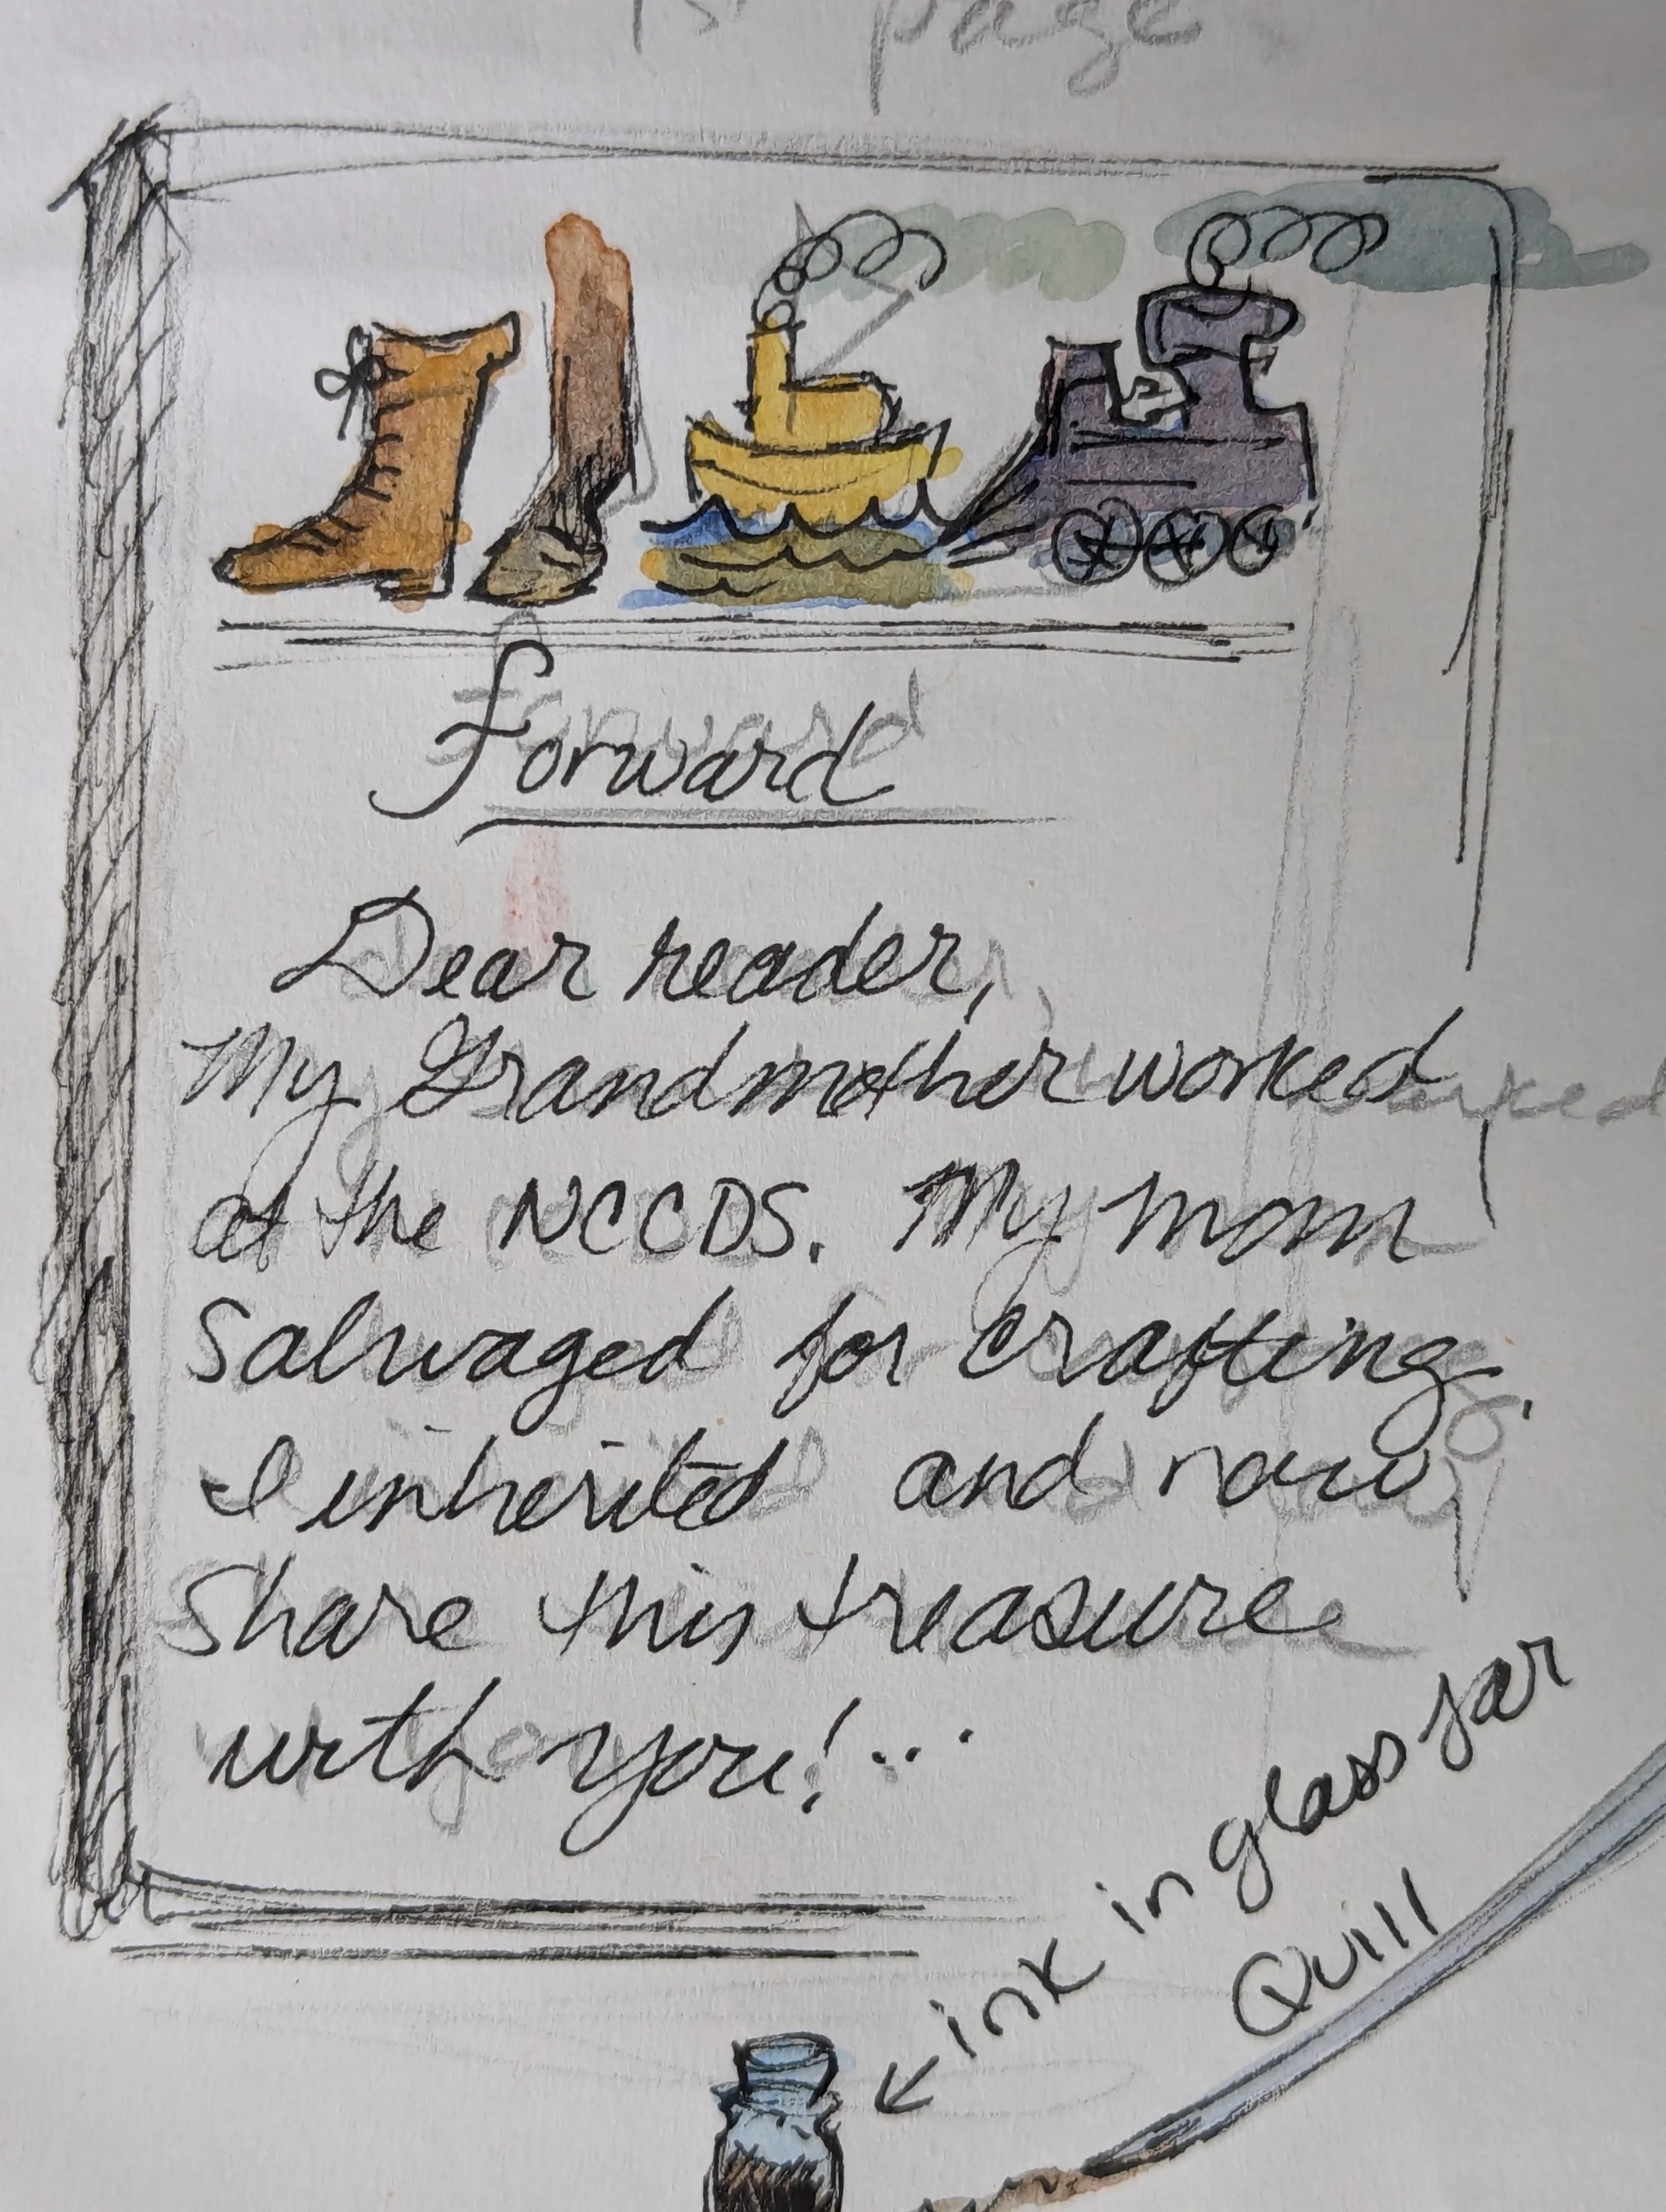 1st page
Forward
Dear reader,
My Grandmother worked
at the NCCDS. My mom
Salvaged for crafting.
I inherited and now
Share this treasure
with you!...
ink in glass jar
Quill